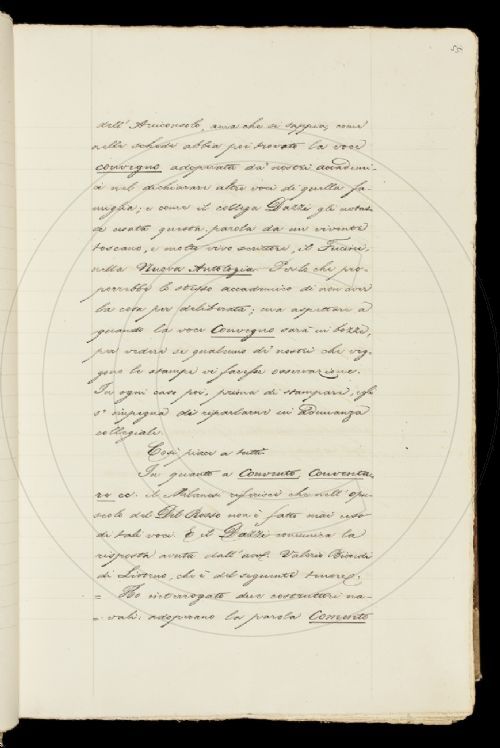 58
dell' Arciconsolo, ama che si sappia, come
nelle schede abbia poi trovato la voce
convegno adoperata da' nostri accademi-
ci nel dichiarare altre voci di quella fa-
miglia; e come il collega Dazzi gli notas-
se usata questa parola da un vivente
toscano, e molto vivo scrittore, il Fucini,
nella Nuova Antologia. Perlochè pro-
porrebbe lo stesso accademico di non aver
la cosa per deliberata; ma aspettare a
quando la voce Convegno sarà in bozze,
per vedere se qualcuno de' nostri che veg-
gono le stampe vi facesse osservazione.
In ogni caso poi, prima di stampare, egli
s' impegna di riparlarne in Adunanza
collegiale.
Così piace a tutti
In quanto a Convento, Conventa-
re ec. il Milanesi riferisce che nell' opu-
scolo del Del Rosso non è fatto mai uso
di tali voci. E il Dazzi comunica la
risposta avuta dall' avv. Valerio
di Livorno, che è del seguente tenore.
= Ho interrogato due costruttori na-
= vali: adoprano la parola Comento